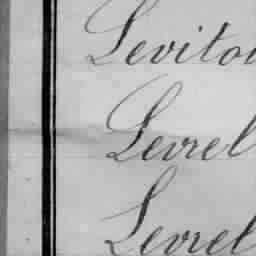 Leviton
Levrel
Levrel